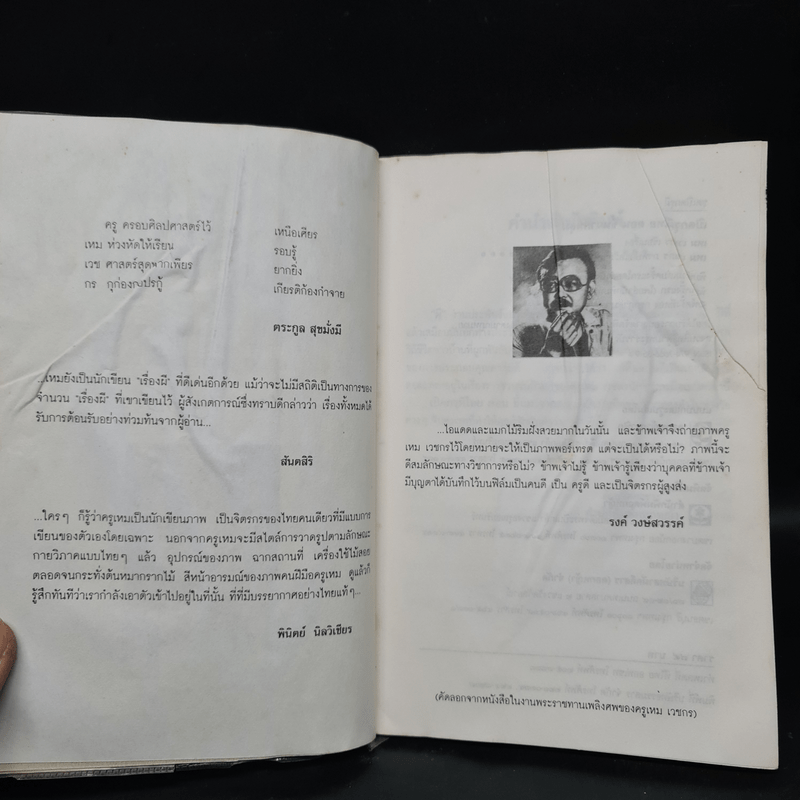 ครู ครอบศิลปศาสตร์ไว้ เหนือเศียร
เหม ห่วงหัดให้เรียน รอบรู้
เวช ศาสตร์สุดพากเพียร ยากยิ่ง
กร เกียรติก้องกำจาย
ตระกูล สุขมั่งมี
...เหมยังเป็นนักเขียน "เรื่องผี" ที่ดีเด่นอีกด้วย แม้ว่าจะไม่มีสถิติเป็นทางการของ
จำนวน "เรื่องผี" ที่เขาเขียนไว้ ผู้สังเกตการณ์ซึ่งทราบดีกล่าวว่า เรื่องทั้งหมดได้
รับการต้อนรับอย่างท่วมท้นจากผู้อ่าน...
สันตสิริ
...ใครๆ ก็รู้ว่าครูเหมเป็นนักเขียนภาพ เป็นจิตรกรของไทยคนเดียวที่มีแบบการ
เขียนของตัวเองโดยเฉพาะ นอกจากครูเหมจะมีสไตล์การวาดรูปตามลักษณะ
กายวิภาคแบบไทยๆ แล้ว อุปกรณ์ของภาพ ฉากสถานที่ เครื่องใช้ไม้สอย
ตลอดจนกระทั่งต้นหมากรากไม้ สีหน้าอารมณ์ของภาพคนฝีมือครูเหม ดูแล้วก็
รู้สึกทันทีว่าเรากำลังเอาตัวเข้าไปอยู่ในที่นั้น ที่ที่มีบรรยากาศอย่างไทยแท้ๆ...
พินิตย์ นิลวิเชียร
...ไอแดดและแมกไม้ริมฝั่งสวยมากในวันนั้น และข้าพเจ้าจึงถ่ายภาพครู
เหม เวชกรไว้โดยหมายจะให้เป็นภาพพอร์เทรต แต่จะเป็นได้หรือไม่? ภาพนี้จะ
ดีสมลักษณะทางวิชาการหรือไม่? ข้าพเจ้าไม่รู้ ข้าพเจ้ารู้เพียงว่าบุคคลที่ข้าพเจ้า
มีบุญตาได้บันทึกไว้บนฟิล์มเป็นคนดี เป็น ครูดี และเป็นจิตรกรผู้สูงส่ง
รงค์ วงษ์สวรรค์
(คัดลอกจากหนังสือในงานพระราชทานเพลิงศพของครูเหม เวชกร)